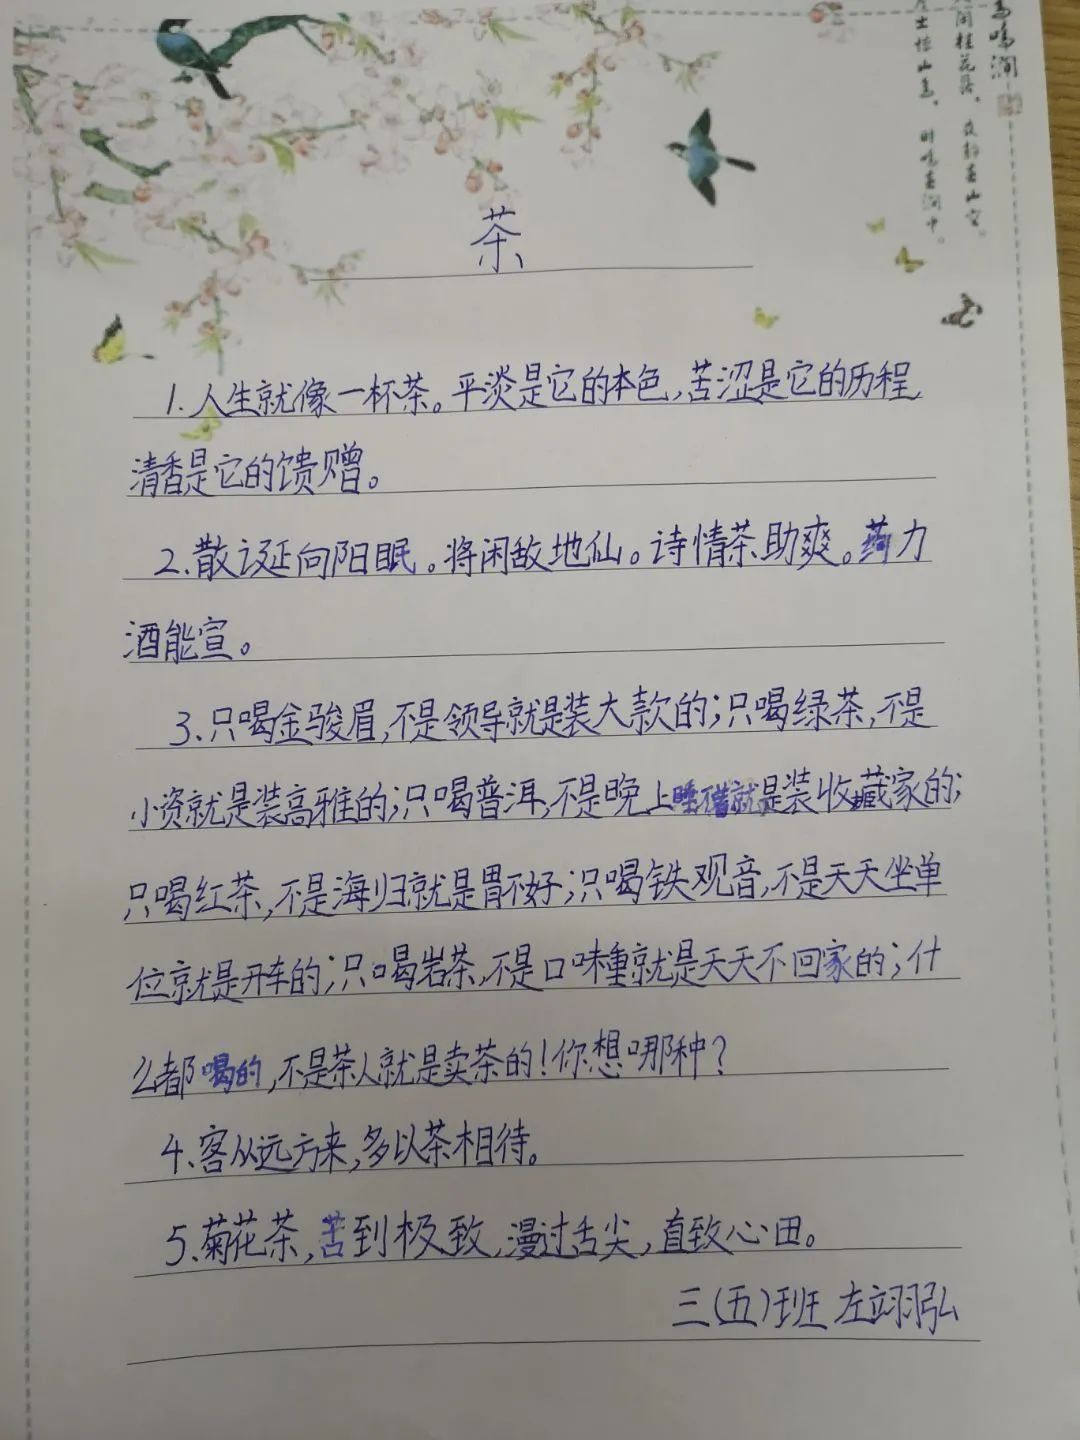 鸟鸣涧
人闲桂花落，夜静春山空。
月出惊山鸟，时鸣春涧中。
茶
1.人生就像一杯茶。平淡是它的本色，苦涩是它的历程，
清香是它的馈赠。
2.散诞向阳眠。将闲敌地仙。诗情茶助爽。药力
酒能宣。
3.只喝金骏眉，不是领导就是装大款的；只喝绿茶，不是
小资就是装高雅的；只喝普洱，不是晚上睡不着就是装收藏家的；
只喝红茶，不是海归就是胃不好；只喝铁观音，不是天天坐单
位就是开车的；只喝岩茶，不是口味重就是天天不回家的；什
么都喝的，不是茶人就是卖茶的！你想哪种？
4.客从远方来，多以茶相待。
5.菊花茶，苦到极致，漫过舌尖，直致心田。
三(五)班 左翊弘